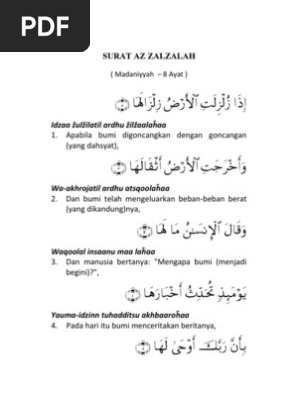 PDF
SURAT AZ ZALZALAH
( Madaniyyah – 8 Ayat )
إِذَا زُلْزِلَتِ ٱلْأَرْضُ زِلْزَالَهَا ۝١
Idzaa żulżilatil ardhu żilżaalaĥaa
1. Apabila bumi digoncangkan dengan goncangan
(yang dahsyat),
وَأَخْرَجَتِ ٱلْأَرْضُ أَثْقَالَهَا ۝٢
Wa-akhrojatil ardhu atsqoolaĥaa
2. Dan bumi telah mengeluarkan beban-beban berat
(yang dikandung)nya,
وَقَالَ ٱلْإِنسَٰنُ مَا لَهَا ۝٣
Waqoolal insaanu maa laĥaa
3. Dan manusia bertanya: "Mengapa bumi (menjadi
begini)?",
يَوْمَئِذٍ تُحَدِّثُ أَخْبَارَهَا ۝٤
Yauma-idzinn tuhadditsu akhbaaroĥaa
4. Pada hari itu bumi menceritakan beritanya,
بِأَنَّ رَبَّكَ أَوْحَىٰ لَهَا ۝٥